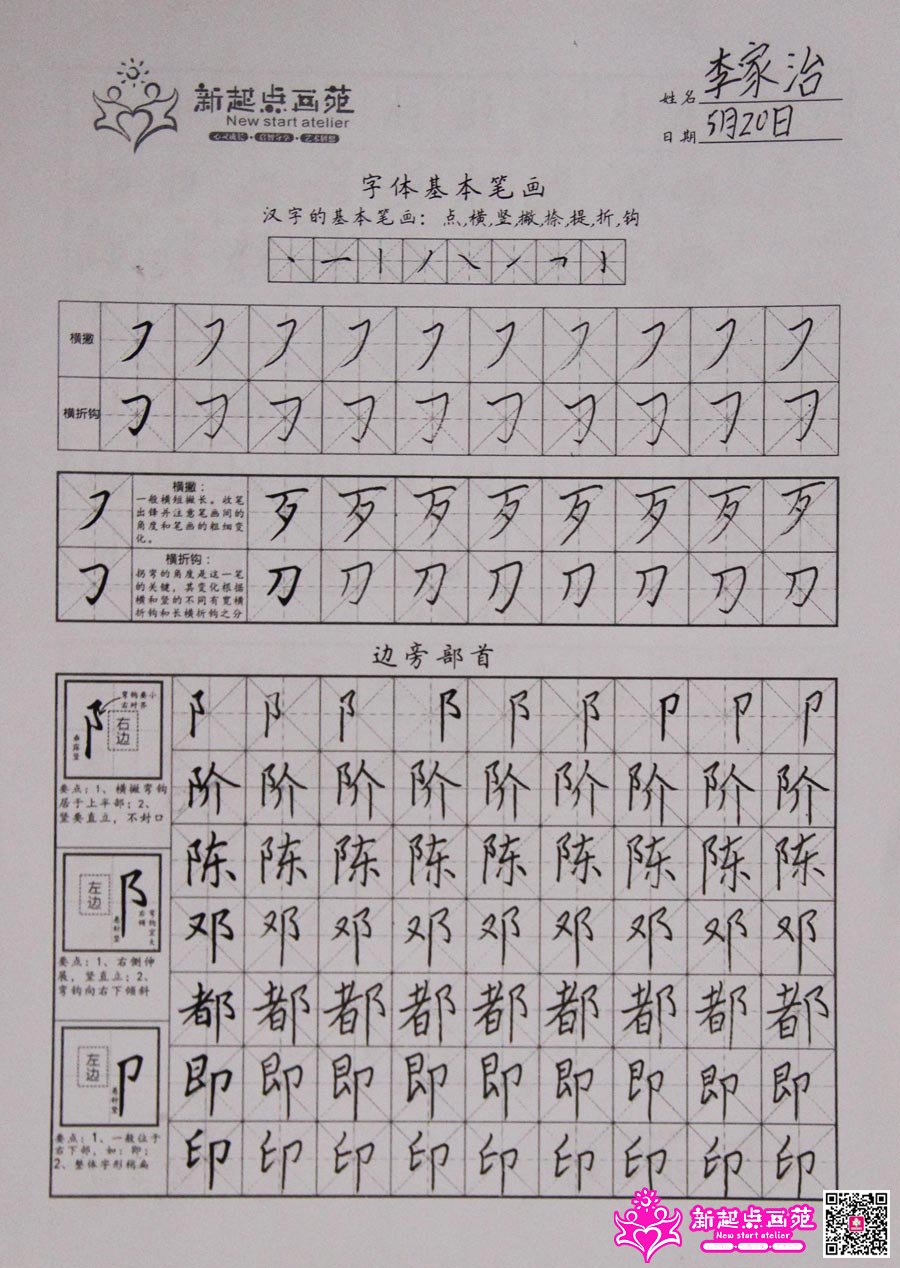 新起点画苑
New start atelier
姓名 李家治
日期 5月20日
字体基本笔画
汉字的基本笔画：点,横,竖,撇,捺,提,折,钩
横撇
横折钩
横撇：
一般横短撇长。收笔
出锋并注意笔画间的
角度和笔画的粗细变
化。
歹 歹 歹 歹 歹 歹 歹 歹
横折钩：
拐弯的角度是这一笔
的关键，其变化根据
横和竖的不同有宽横
折钩和长横折钩之分
刀 刀 刀 刀 刀 刀 刀 刀
边旁部首
弯钩要小
右对齐
右边
垂露竖
要点：1、横撇弯钩
居于上半部；2、
竖要直立，不封口
左边
弯钩宜大
右倾
悬针竖
要点：1、右侧伸
展，竖直立；2、
弯钩向右下倾斜
左边
悬针竖
要点：1、一般位于
右下部，如：即；
2、整体字形稍扁
阝 阝 阝 阝 阝 阝 卩 卩 卩
阶 阶 阶 阶 阶 阶 阶 阶 阶
陈 陈 陈 陈 陈 陈 陈 陈 陈
邓 邓 邓 邓 邓 邓 邓 邓 邓
都 都 都 都 都 都 都 都 都
即 即 即 即 即 即 即 即 即
印 印 印 印 印 印 印 印 印
新起点画苑
New start atelier